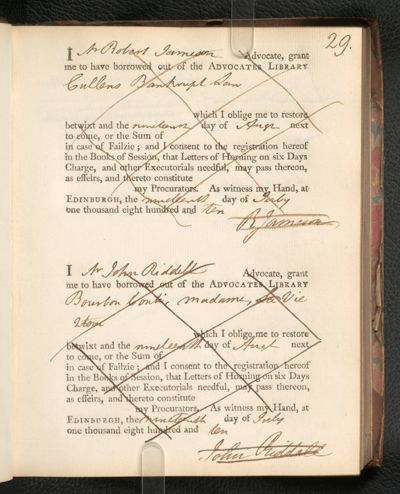 29.
I Mr Robert Jameson Advocate, grant
me to have borrowed out of the ADVOCATES LIBRARY
Cullens Bankrupt Law
which I oblige me to restore
betwixt and the nineteenth day of Augt next
to come, or the Sum of
in case of Failzie; and I consent to the registration hereof
in the Books of Session, that Letters of Horning on six Days
Charge, and other Executorials needful, may pass thereon,
as effeirs, and thereto constitute
my Procurators. As witness my Hand, at
EDINBURGH, the nineteenth day of July
one thousand eight hundred and ten
R Jameson
I Mr John Riddell Advocate, grant
me to have borrowed out of the ADVOCATES LIBRARY
Bourbon Conti, madame, Sa Vie
2 tom
which I oblige me to restore
betwixt and the nineteenth day of Augt next
to come, or the Sum of
in case of Failzie; and I consent to the registration hereof
in the Books of Session, that Letters of Horning on six Days
Charge, and other Executorials needful, may pass thereon,
as effeirs, and thereto constitute
my Procurators. As witness my Hand, at
EDINBURGH, the nineteenth day of July
one thousand eight hundred and ten
John Riddell